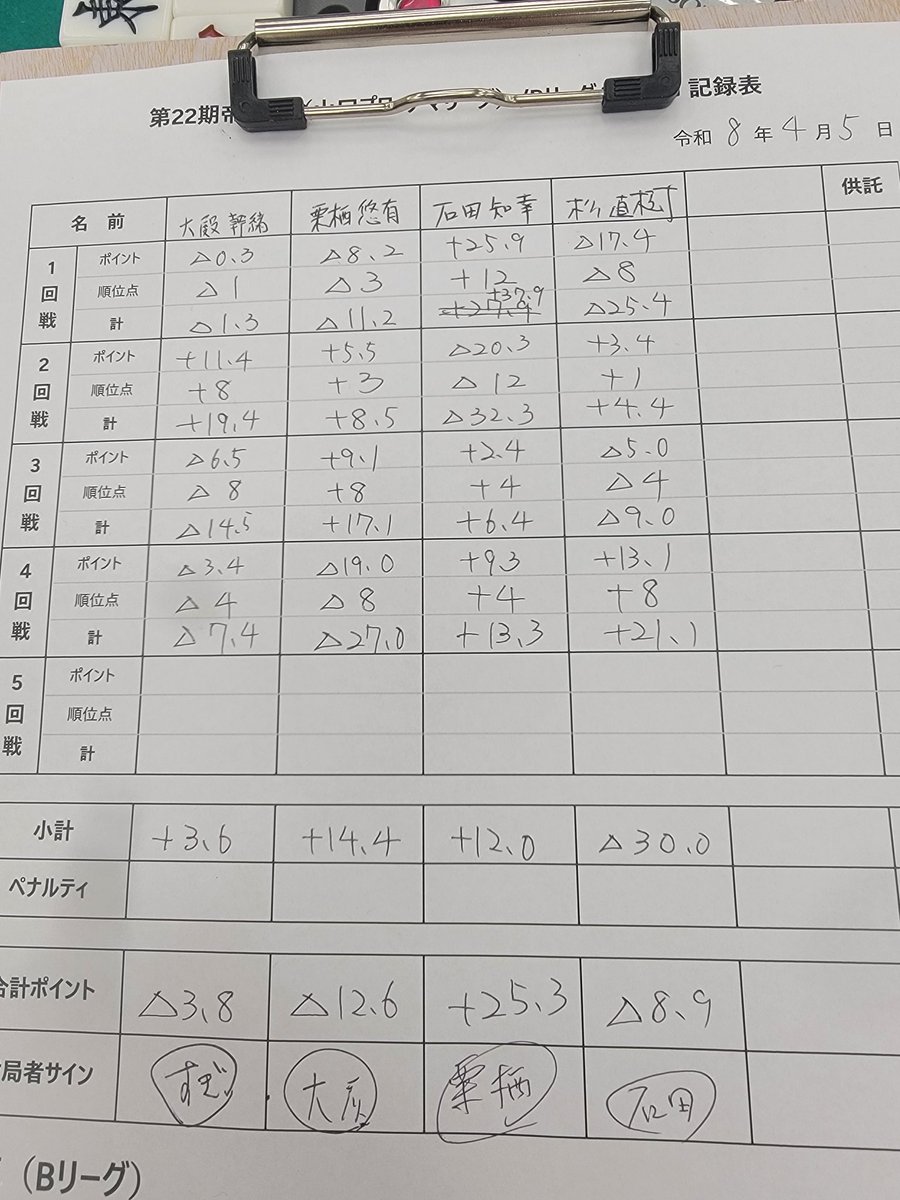 第22期帝 記録表
令和 8 年 4 月 5 日
名 前 大段 幹緒 栗栖 悠有 石田 知幸 杉 直樹 供託
1回戦 ポイント △0.3 △8.2 +25.9 △17.4
順位点 △1 △3 +12 △8
計 △1.3 △11.2 +37.9 △25.4
2回戦 ポイント +11.4 +5.5 △20.3 +3.4
順位点 +8 +3 △12 +1
計 +19.4 +8.5 △32.3 +4.4
3回戦 ポイント △6.5 +9.1 +2.4 △5.0
順位点 △8 +8 +4 △4
計 △14.5 +17.1 +6.4 △9.0
4回戦 ポイント △3.4 △19.0 +9.3 +13.1
順位点 △4 △8 +4 +8
計 △7.4 △27.0 +13.3 +21.1
5回戦 ポイント
順位点
計
小計 +3.6 +14.4 +12.0 △30.0
ペナルティ
合計ポイント △3.8 △12.6 +25.3 △8.9
局者サイン すぎ 大段 栗栖 石田
(Bリーグ)